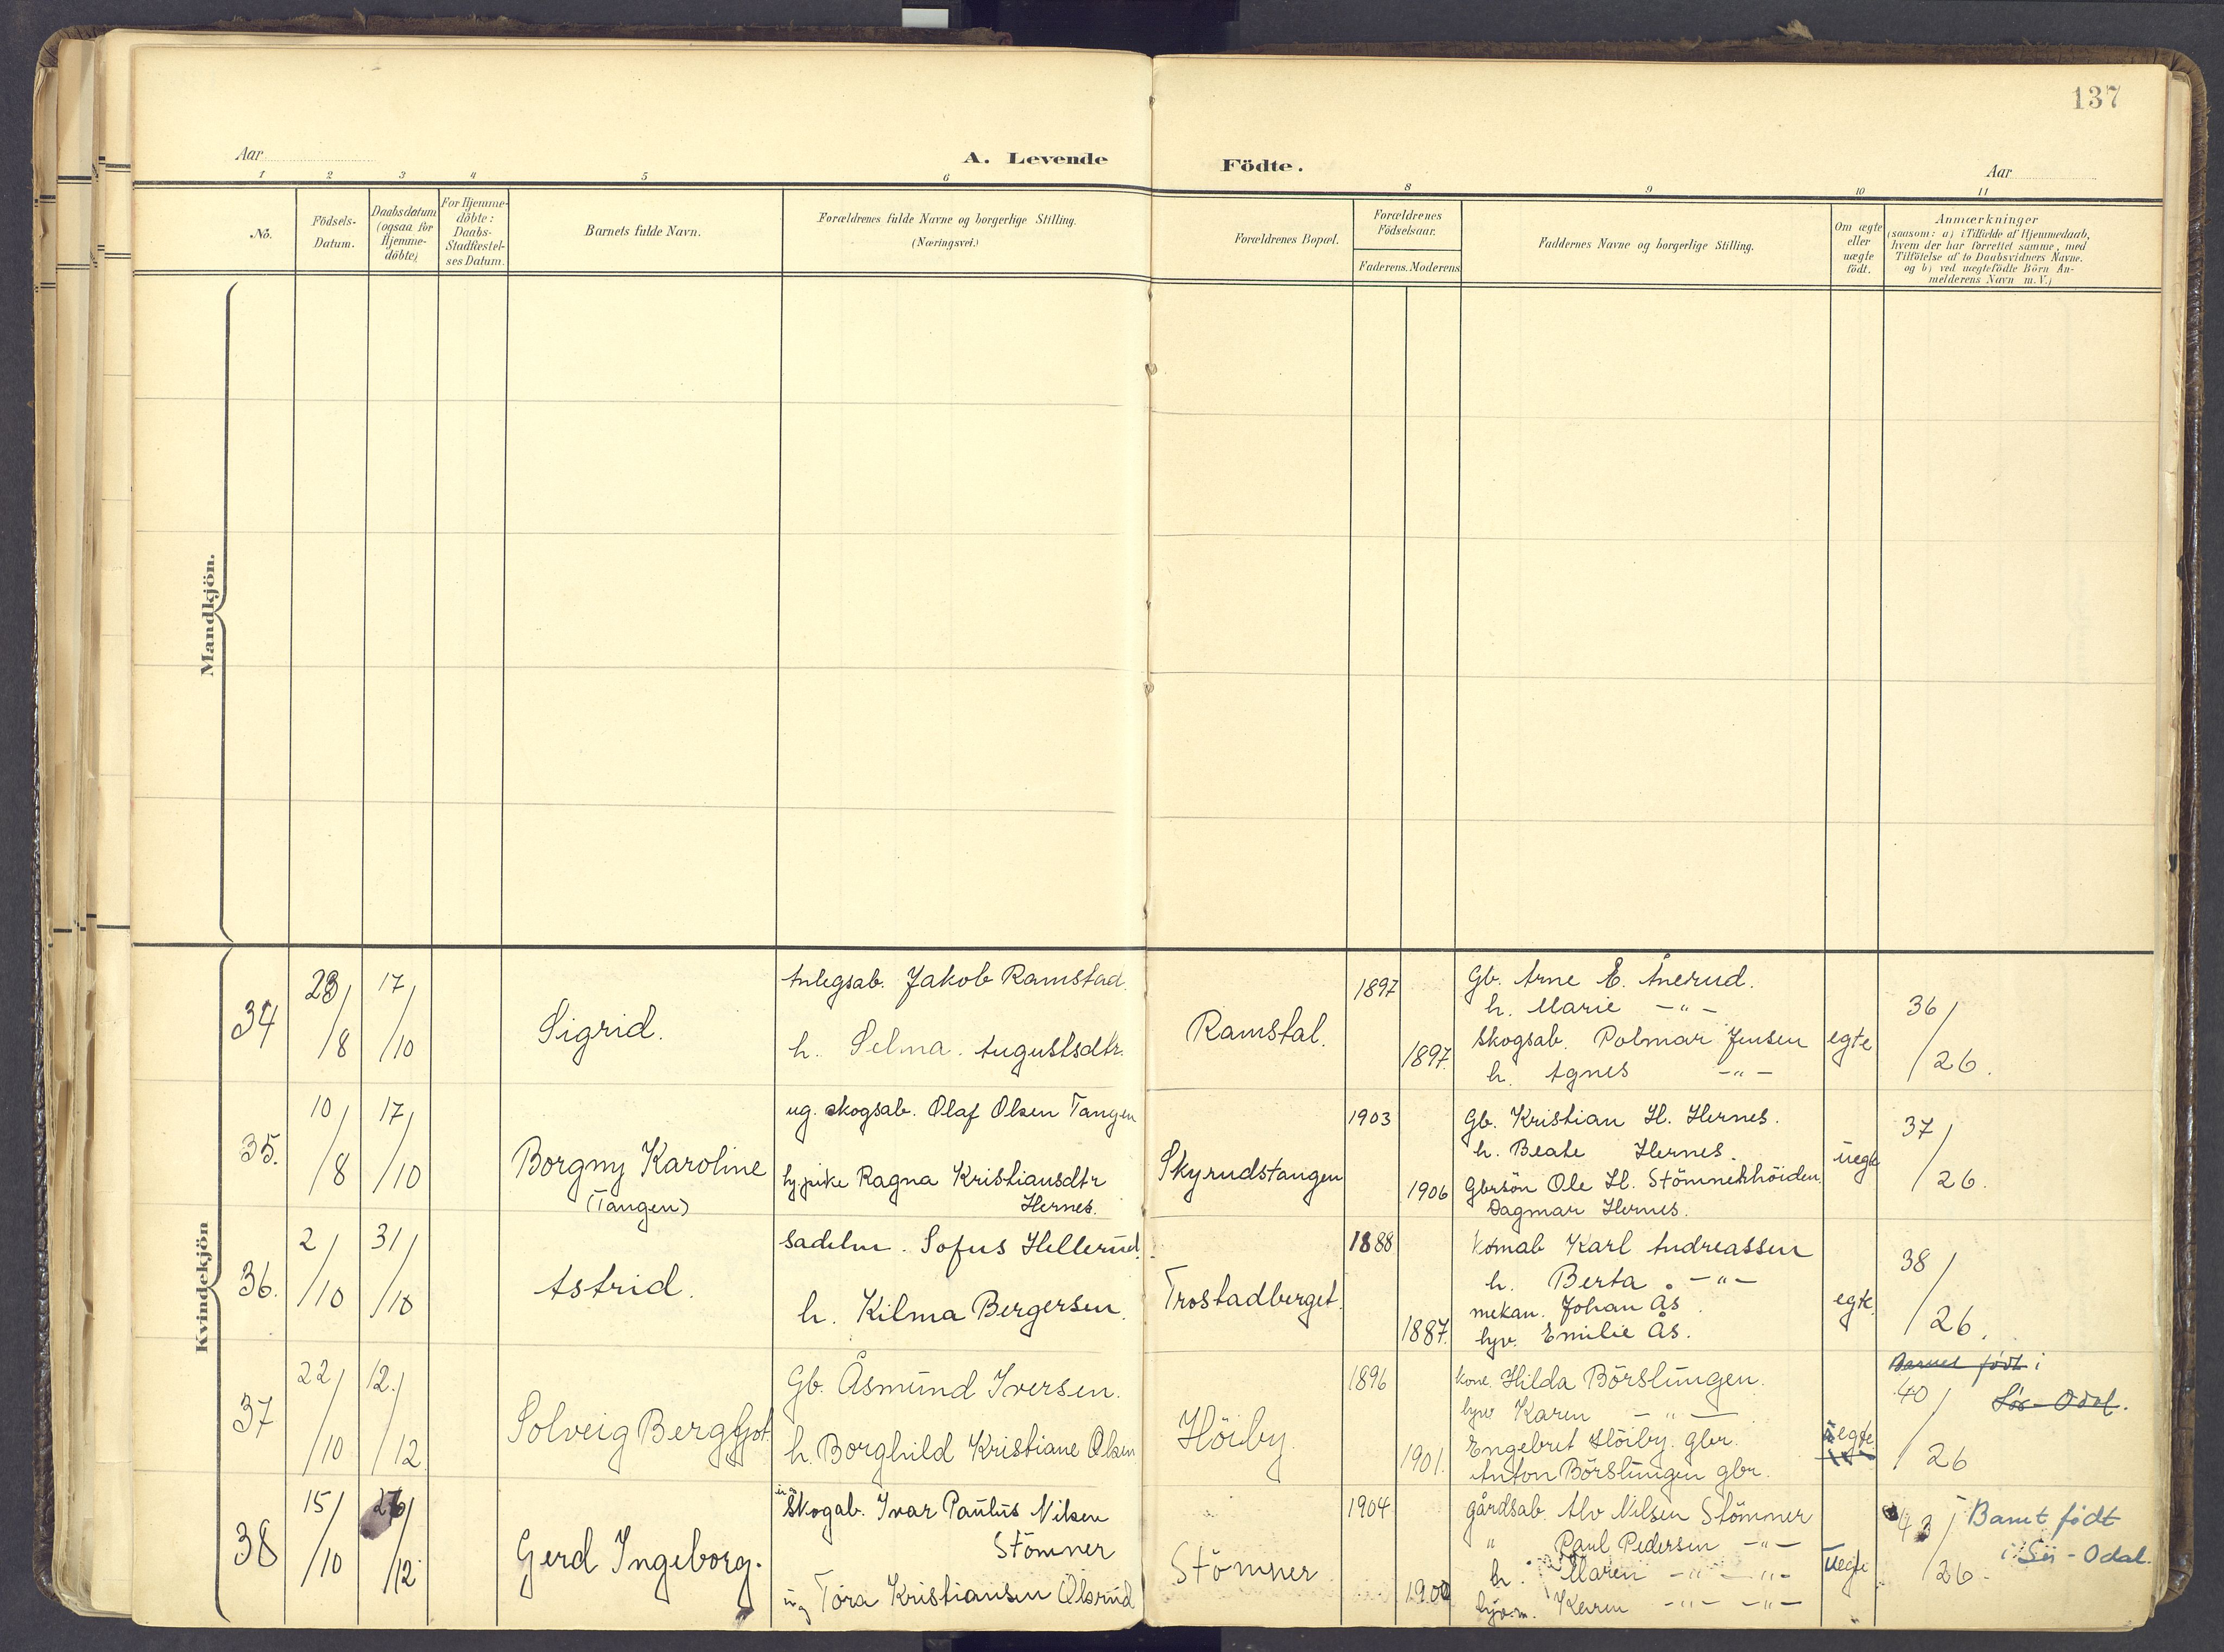 137
Aar
A. Levende
Födte.
Aar
1 2 3 4 5 6 8 9 10 11
No.
Födsels-
Datum.
Daabsdatum
(ogsaa for
Hjemme-
döbte)
For Hjemme-
döbte:
Daabs-
Stadfæstel-
ses Datum.
Barnets fulde Navn.
Forældrenes fulde Navne og borgerlige Stilling.
(Næringsvei.)
Forældrenes Bopæl.
Forældrenes
Födselsaar.
Faderens. Moderens
Faddernes Navne og borgerlige Stilling.
Om ægte
eller
uægte
födt.
Anmærkninger
(saasom: a) i Tilfælde af Hjemmedaab,
hvem der har forrettet samme, med
Tilföielse af to Daabsvidners Navne.
og b) ved uægtefödte Börn An-
melderens Navn m. V.)
Mandkjön.
Kvindekjön
34
28/8
17/10
Sigrid.
Anlegsab. Jakob Ramstad.
h. Selma Augustsdtr.
Ramstal.
1897
1897.
Gb. Arne E. Ånerud.
h. Marie -"-
Skogsab. Polmar Jensen
h. Agnes -"-
egte
36/26.
35.
10/8
17/10
Borgny Karoline
(Tangen)
ug. skogsab. Olaf Olsen Tangen
hj. pike Ragna Kristiansdtr
Hernes.
Skyrudstangen
1903
1906
Gb. Kristian H. Hernes.
h. Beate Hernes.
Gbrsön Ole H. Stömnerhöiden.
Dagmar Hernes.
uegte
37/26.
36.
2/10
31/10
Astrid.
Sadelm. Sofus Hellerud.
h. Kilma Bergersen.
Trostadberget.
1888
1887.
Karl Andreassen
h. Berta -"-
mekan. Johan Ås.
hjv. Emilie Ås.
egte.
38/26.
37
22/10
12./12
Solveig Bergljot.
Gb. Åsmund Iversen.
h. Borghild Kristiane Olsen
Höiby.
1896
1901.
kone. Hilda Börslungen.
hjv. Karen -"-
Engebret Höiby. gbr.
Anton Börslungen gbr.
uegte
Barnet födt i
Sör-Odal.
40/26
38
15/10
26/12
Gerd Ingeborg.
Skogab. Ivar Paulus Nilsen
Stömner
ug Tora Kristiansen Olsrud
Stömner
1904
1900
gårdsab. Alv Nilsen Stömner
" Paul Pedersen -"-
h. Maren -"- -"-
hjv.m. Karen -"- -"-
uegte
43/26.
Barnet födt
i Sör-Odal.